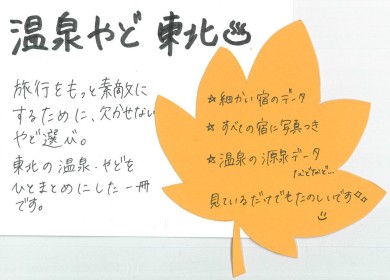 温泉やど 東北♨
旅行をもっと素敵に
するために、欠かせない
やど選び。
東北の温泉・やどを
ひとまとめにした一冊
です。
☆細かい宿のデータ
☆すべての宿に写真つき
☆温泉の源泉データ
などなど…
見ているだけでもたのしいです☆☆